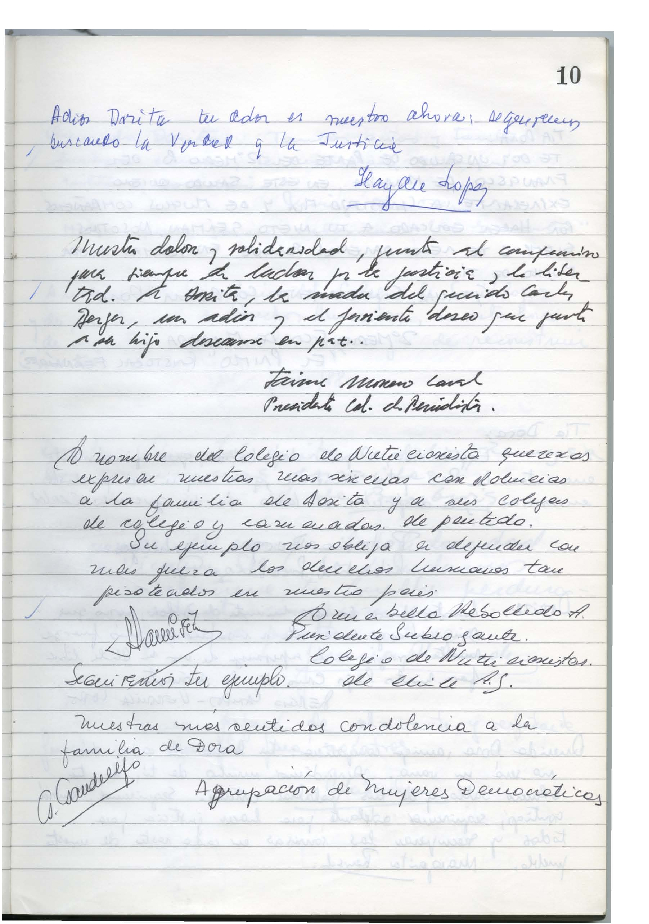 10
Adios Dorita tu dolor es nuestro ahora; seguiremos
buscando la Verdad y la Justicia
Haydee Lopez
Nuestro dolor y solidaridad, junto al compromiso
para siempre de luchar por la justicia y la liber
tad. A Dorita, la madre del querido Carlos
Berger, un adios y el ferviente deseo que junto
a su hijo descanse en paz..
Jaime Moreno Laval
Presidente Col. de Periodistas.
A nombre del Colegio de Nutricionista queremos
expresar nuestras mas sinceras condolencias
a la familia de Dorita y a sus colegas
de colegio y camaradas de partido.
Su ejemplo nos obliga a defender con
mas fuerza los derechos humanos tan
pisoteados en nuestro pais
Rebolledo A.
Presidente Subrogante.
Colegio de Nutricionistas.
Seguiremos tu ejemplo. de Chile A.G.
Nuestras más sentidas condolencia a la
familia de Dora
Agrupación de Mujeres Democráticas